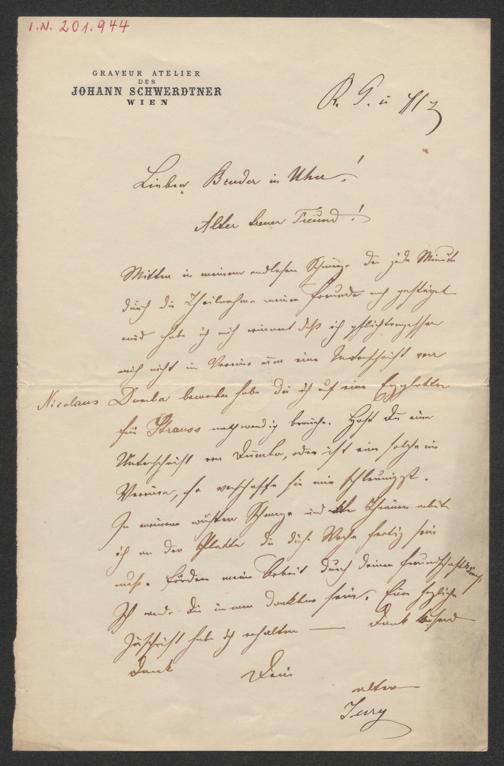 I.N. 201.944
GRAVEUR ATELIER
DES
JOHANN SCHWERDTNER
WIEN
Lieber Bruder in Uhu!
Alter treuer Freund!
Mitten in meinem endlosen die jede Minute
durch die Theilnahme meiner Freunde
und habe ich mich erinnert daß ich pflichtvergessen
mich nicht im Vereine um eine Unterschrift von
Nicolaus Dumba beworben habe die ich auf eine
für Strauss nothwendig brauche. Hast Du eine
Unterschrift von Dumba, oder ist eine solche im
Vereine, so verschaffe sie mir schleunigst.
In meinem und Thränen
ich an der Platte die diese Woche fertig sein
muß. Fördere meine Arbeit durch deine
Ich werde Dir immer dankbar sein. Eine herzliche
Zuschrift habe ich erhalten — Dank
Dank Dein
alter
Jury